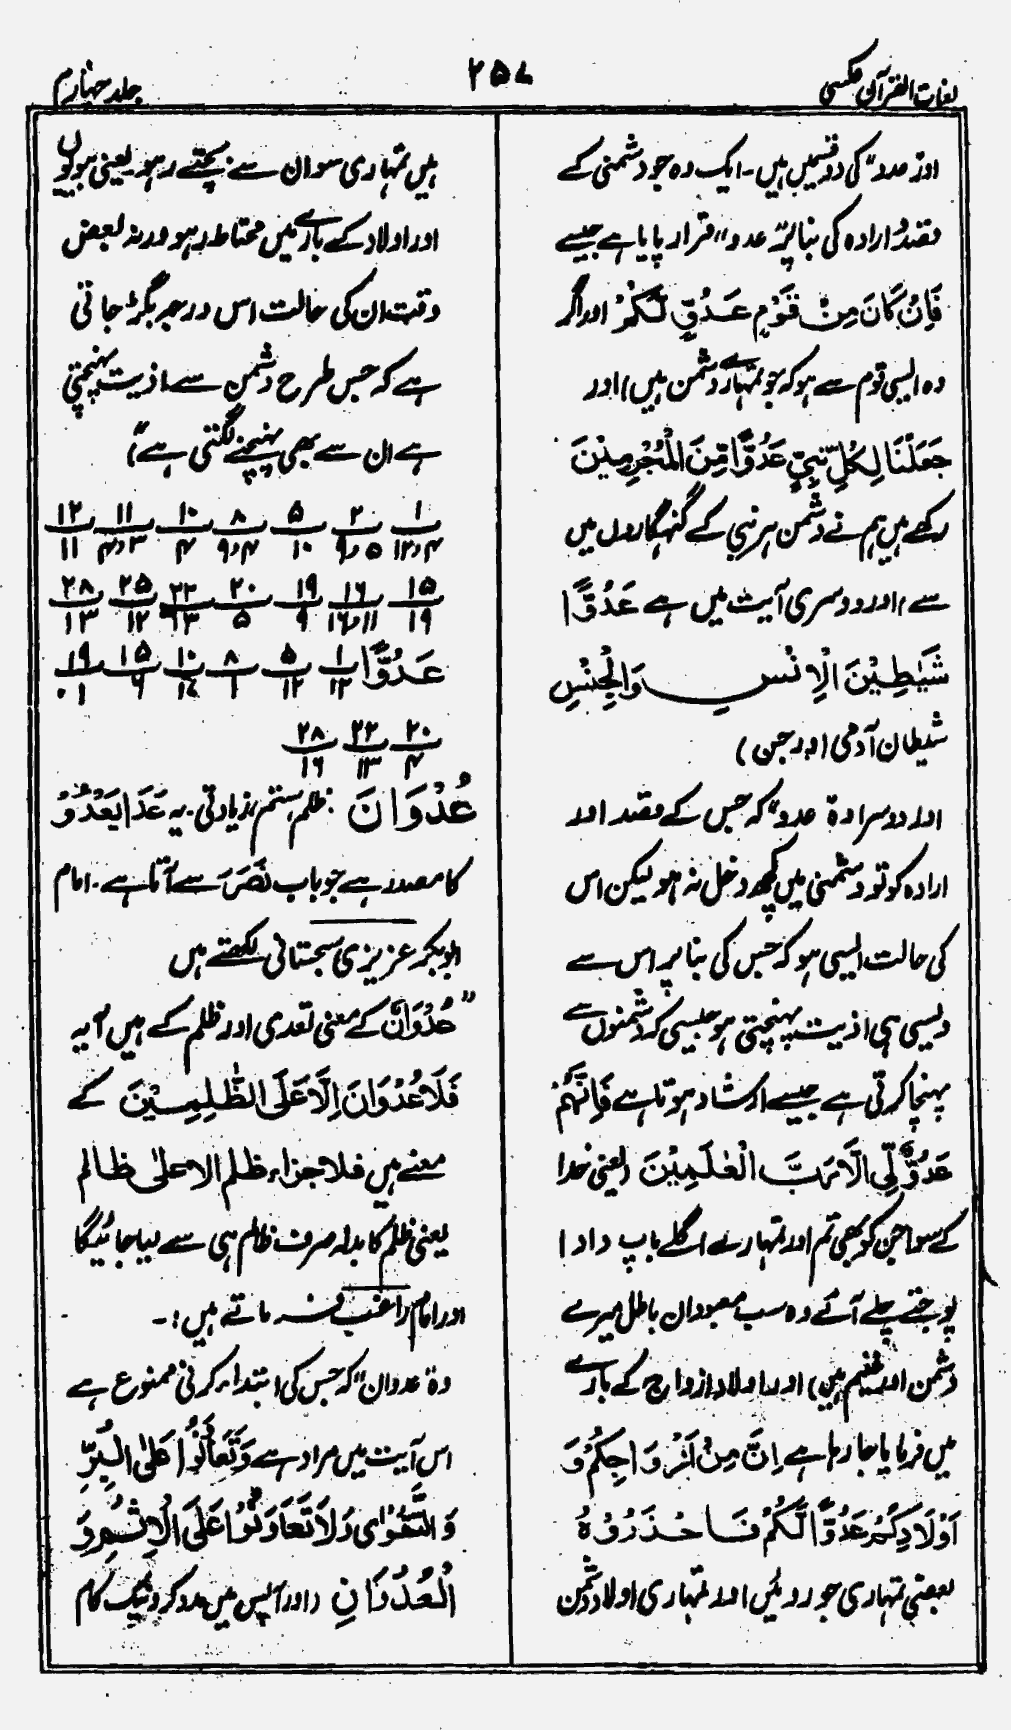 لغات القرآن عکسی
۲۵۷
جلد چہارم
اور عدو" کی دو قسمیں ہیں۔ ایک وہ جو دشمنی کے
قصد و ارادہ کی بنا پر عدو" قرار پایا ہے جیسے
فَاِنْ كَانَ مِنْ قَوْمٍ عَدُوٍّ لَّكُمْ اور اگر
وہ ایسی قوم سے ہو کہ جو تمہارے دشمن ہیں) اور
جَعَلْنَا لِكُلِّ نَبِيٍّ عَدُوًّا مِّنَ الْمُجْرِمِيْنَ
رکھے ہیں ہم نے دشمن ہر نبی کے گنہگاروں میں
سے، اور دوسری آیت میں ہے عَدُوًّا
شَيٰطِيْنَ الْاِنْسِ وَالْجِنِّ
شیطان آدمی اور جن )
اور دوسرا وہ عدو" کہ جس کے قصد اور
ارادہ کو تو دشمنی میں کچھ دخل نہ ہو لیکن اس
کی حالت ایسی ہو کہ جس کی بنا پر اس سے
ویسی ہی اذیت پہنچتی ہو جیسی کہ دشمنوں سے
پہنچا کرتی ہے جیسے ارشاد ہوتا ہے فَاِنَّهُمْ
عَدُوٌّ لِّيْ اِلَّا رَبَّ الْعٰلَمِيْنَ (یعنی خدا
کے سوا جن کو بھی تم اور تمہارے اگلے باپ دادا
پوجتے چلے آئے وہ سب معبودان باطل میرے
دشمن اور غنیم ہیں) اور اولاد ازواج کے بارے
میں فرمایا جا رہا ہے اِنَّ مِنْ اَزْوَاجِكُمْ وَ
اَوْلَادِكُمْ عَدُوًّا لَّكُمْ فَاحْذَرُوْهُ
بعضی تمہاری جوروئیں اور تمہاری اولاد دشمن
ہیں تمہاری سو ان سے بچتے رہو۔ یعنی بیویوں
اور اولاد کے بارے میں محتاط رہو ورنہ بعض
وقت ان کی حالت اس درجہ بگڑ جاتی
ہے کہ جس طرح دشمن سے اذیت پہنچتی
ہے ان سے بھی پہنچنے لگتی ہے)
۱/۴و۱۲ ۲/۵و۹ ۵/۱۰ ۸/۴و۹ ۱۰/۴ ۱۱/۳و۴ ۱۲/۱۱
۱۵/۱۹ ۱۶/۱۱و۱۶ ۱۹/۹ ۲۰/۵ ۲۲ ۲۵/۱۲ ۲۸/۱۳
عَدُوًّا ۱/۱۲ ۵/۱۲ ۸/۱ ۱۰/۱۴ ۱۵/۶ ۱۹/۱
۲۰/۴ ۲۲/۱۳ ۲۸/۱۶
عُدْوَانَ ظلم، ستم، زیادتی۔ یہ عَدَا یَعْدُوْ
کا مصدر ہے جو باب نَصَرَ سے آتا ہے۔ امام
ابوبکر عزیزی سجستانی لکھتے ہیں
"عُدْوَانَ کے معنی تعدی اور ظلم کے ہیں آیہ
فَلَا عُدْوَانَ اِلَّا عَلَى الظّٰلِمِيْنَ کے
معنے ہیں فلا جزاء ظلم الا علیٰ ظالم
یعنی ظلم کا بدلہ صرف ظالم ہی سے لیا جائیگا
اور امام راغب فرماتے ہیں:۔
وہ عدوان" کہ جس کی ابتداء کرنی ممنوع ہے
اس آیت میں مراد ہے وَتَعَاوَنُوْا عَلَى الْبِرِّ
وَالتَّقْوٰى وَلَا تَعَاوَنُوْا عَلَى الْاِثْمِ وَ
الْعُدْوَانِ (اور آپس میں مدد کرو نیک کام